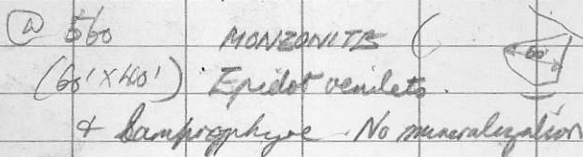 @ 560 MONZONITE ( 60'
(60' X 40') Epidot venilets.
& Lamprophyre. No mineralization